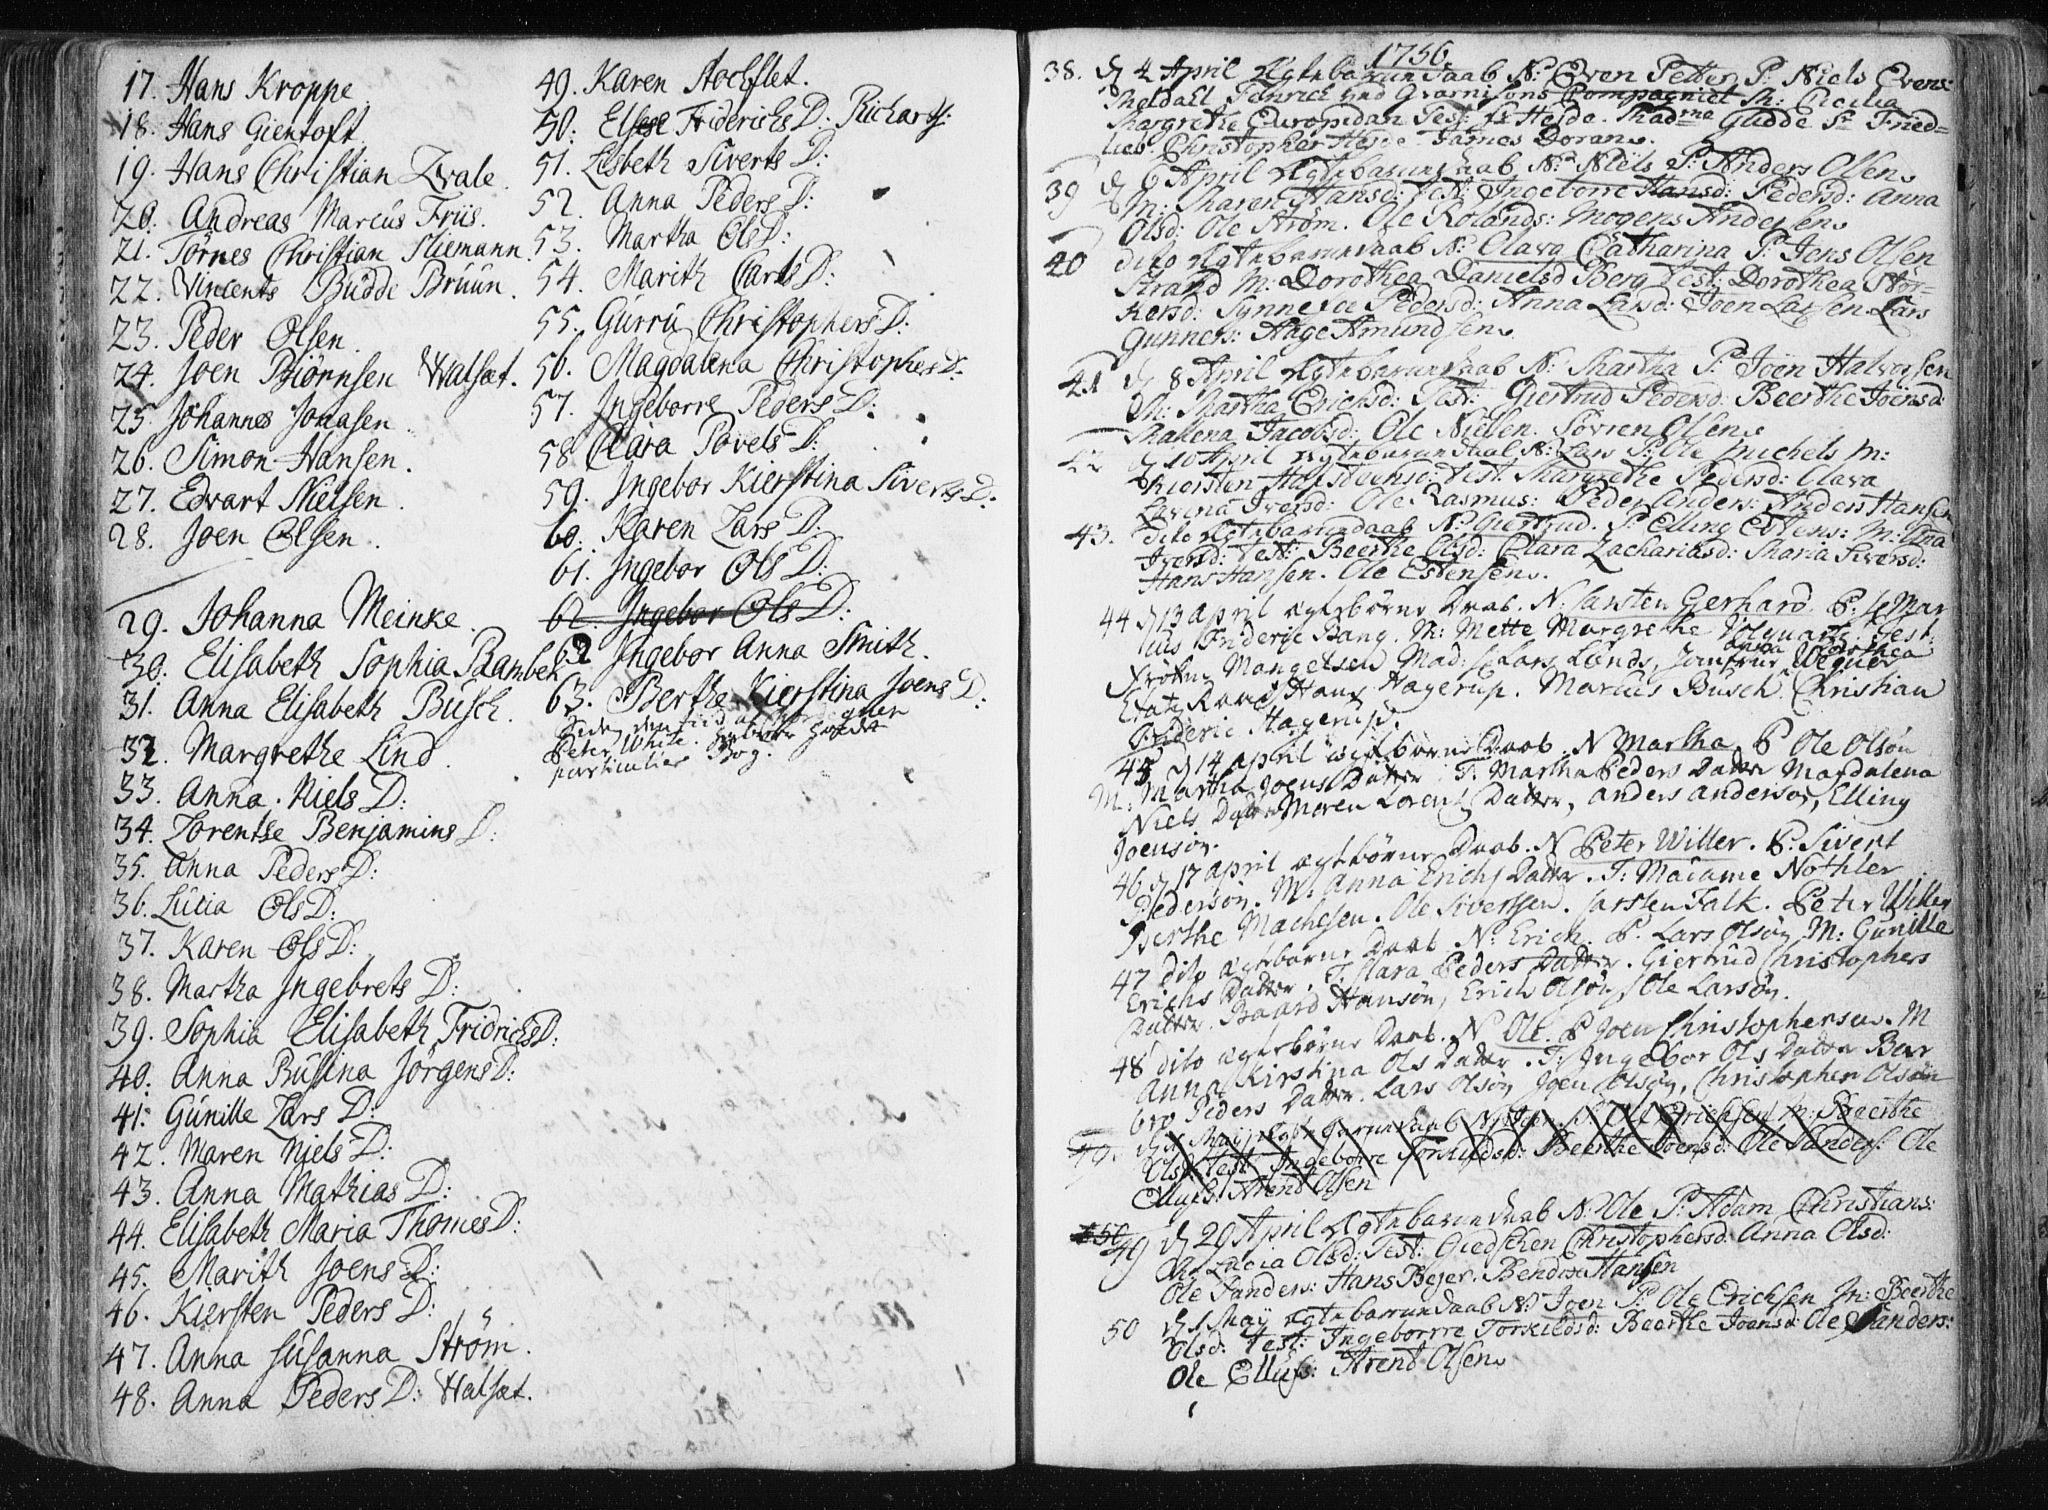 17. Hans Kroppe.
18. Hans Gientoft.
19. Hans Christian Zvale.
20. Andreas Marcus Friis.
21. Törnes Christian Sliemann.
22. Vincents Budde Bruun.
23. Peder Olsen.
24. Joen Biörnsen Walsæt.
25. Johannes Jonasen.
26. Simon Hansen.
27. Edvart Nielsen.
28. Joen Olsen.
29. Johanna Meinke.
30. Elisabeth Sophia Baambek
31. Anna Elisabeth Busch.
32. Margrethe Lind.
33. Anna Niels D:
34. Lorentse Benjamins D:
35. Anna Peders D:
36. Lucia Ols D:
37. Karen Ols D:
38. Martha Ingebrets D:
39. Sophia Elisabeth Fridrichs D:
40. Anna Busina Jörgens D:
41. Gunille Lars D:
42. Maren Niels D:
43. Anna Mathias D:
44. Elisabeth Maria Thomes D:
45. Marith Joens D:
46. Kiersten Peders D:
47. Anna Susanna Ström.
48. Anna Peders D: Walsæt.
49. Karen Stochflet.
50. Elsese Friderichs D: Richarts:
51. Lisbeth Siverts D:
52. Anna Peders D:
53. Martha Ols D:
54. Marith Carls D:
55. Gurru Christophers D:
56. Magdalena Christophers D:
57. Ingeborre Peders D:
58. Clara Povels D:
59. Ingebor Kierstina Siverts D:
60. Karen Lars D:
61. Ingebor Ols D:
62. Ingebor Ols D:
62 Ingebor Anna Smith.
63. Berthe Kierstina Joens D:
Peter White.
particulier Bog.
1756.
38. d 4 April Ægtebarun daab N: Even Petter P: Niels Evens:
Meldahl Fenrich ved Gvarnisons Compagniet M: Cecilia
Margrethe Europidan Test: Hejde. Madme Gudde Sr Fried-
lieb Christopher Hejde James Doran.
39 d 6 April Ægtebarun daab N: Niels P: Anders Olsen
M: Maren Hansd: Test: Ingeborre Hansd: Pedersd: Anna
Olsd: Ole Ström. Ole Rolands: Mogens Andersen
40 dito Ægtebarun daab N: Clava Catharina P: Jens Olsen
Strand M: Dorothea Danielsd Berg Test: Dorothea Stör-
kersd: Synneve Pedersd: Anna Larsd: Joen Larsen Lars
Gunners: Aage Amundsen
41 d 8 April Ægtebarun daab N: Martha P: Joen Halvorsen
M: Martha Erichsd: Test: Giertrud Pedersd: Beerthe Joensd:
Mahena Jacobsd: Ole Nielsen. Sörren Olsen
42 d 10 April Ægtebarun daab N: Lars P: Ole Michels M:
Kiersten Hafstensd: Test: Margrethe Pedersd: Clava
Lavina Iversd: Ole Rasmus: Peder Anders: Anders Hansen
43. dito Ægtebarun daab N: Giertrud. P: Elling Estens: M: Ana
Iversd: Test: Beerthe Olsd: Clara Zachariasd: Maria Siversd:
Hans Hansen. Ole Estensen.
44 d 13 april ægtebörne Daab. N: Carsten Gerhard. P: Mar
cus Friderje Bang. M: Mette Margrethe Volquarts. Test:
Frökn Mangelsen Mad: Lars Lunds, Jomfrue Anna Dorthea Wegner
Etatz Raad Hans Hagerup. Marcus Busch Christian
Frideric Hagerup.
45 d 14 april ægtebörne Daab. N Martha P Ole Olsön
M: Martha Joens Datter T: Martha Peders Datter Magdalena
Niels Datter Maren Lorentz Datter, Anders Anderson, Elling
Joensön.
46 d 17 april ægtebörne Daab. N Peter Willer. P: Sivert
Pedersön. M: Anna Erichs Datter. T: Madame Nothler
Berthe Machesen. Ole Sivertsen. Carsten Falk. Peter Willer
47 dito ægtebörne Daab. N: Erich. P. Lars Olsön M: Gunille
Erichs Datter. T: Clara Peders Datter. Giertrud Christophers
Datter. Baard Hansön, Erich Olsön, Ole Larsön.
48 dito ægtebörne Daab. N Ole. P Joen Christophersen. M
Anna Kirstina Ols Datter. T: Ingebor Ols Datter Bar
bro Peders Datter. Lars Olsön Joen Olsön, Christopher Olsön
49. d 1 May Ægtebarun daab N: Joen P: Ole Erichsen M: Beerthe
Olsd: Test: Ingeborre Torkildsd: Beerthe Joensd: Ole Sanders: Ole
Ellufs: Arend Olsen
50 49 d 29 April Ægtebarun daab N: Ole P: Adam Christians:
M: Lucia Olsd: Test: Giedschen Christophersd: Anna Olsd:
Ole Sanders: Hans Bejer. Bendix Hansen
50 d 1 May Ægtebarun daab N: Joen P: Ole Erichsen M: Beerthe
Olsd: Test: Ingeborrre Torkildsd: Beerthe Joensd: Ole Sanders:
Ole Ellufs: Arend Olsen